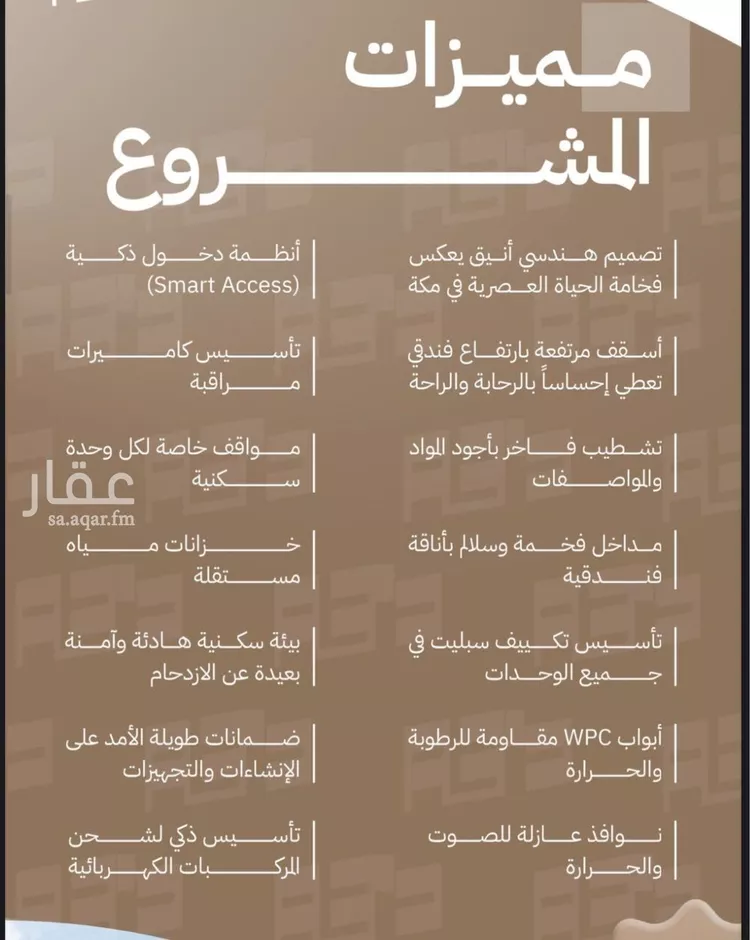 مميزات
المشروع
تصميم هندسي أنيق يعكس
فخامة الحياة العصرية في مكة
أسقف مرتفعة بارتفاع فندقي
تعطي إحساساً بالرحابة والراحة
تشطيب فاخر بأجود المواد
والمواصفات
مداخل فخمة وسلالم بأناقة
فندقية
تأسيس تكييف سبليت في
جميع الوحدات
أبواب WPC مقاومة للرطوبة
والحرارة
نوافذ عازلة للصوت
والحرارة
أنظمة دخول ذكية
(Smart Access)
تأسيس كاميرات
مراقبة
مواقف خاصة لكل وحدة
سكنية
خزانات مياه
مستقلة
بيئة سكنية هادئة وآمنة
بعيدة عن الازدحام
ضمانات طويلة الأمد على
الإنشاءات والتجهيزات
تأسيس ذكي لشحن
المركبات الكهربائية
عقار
sa.aqar.fm